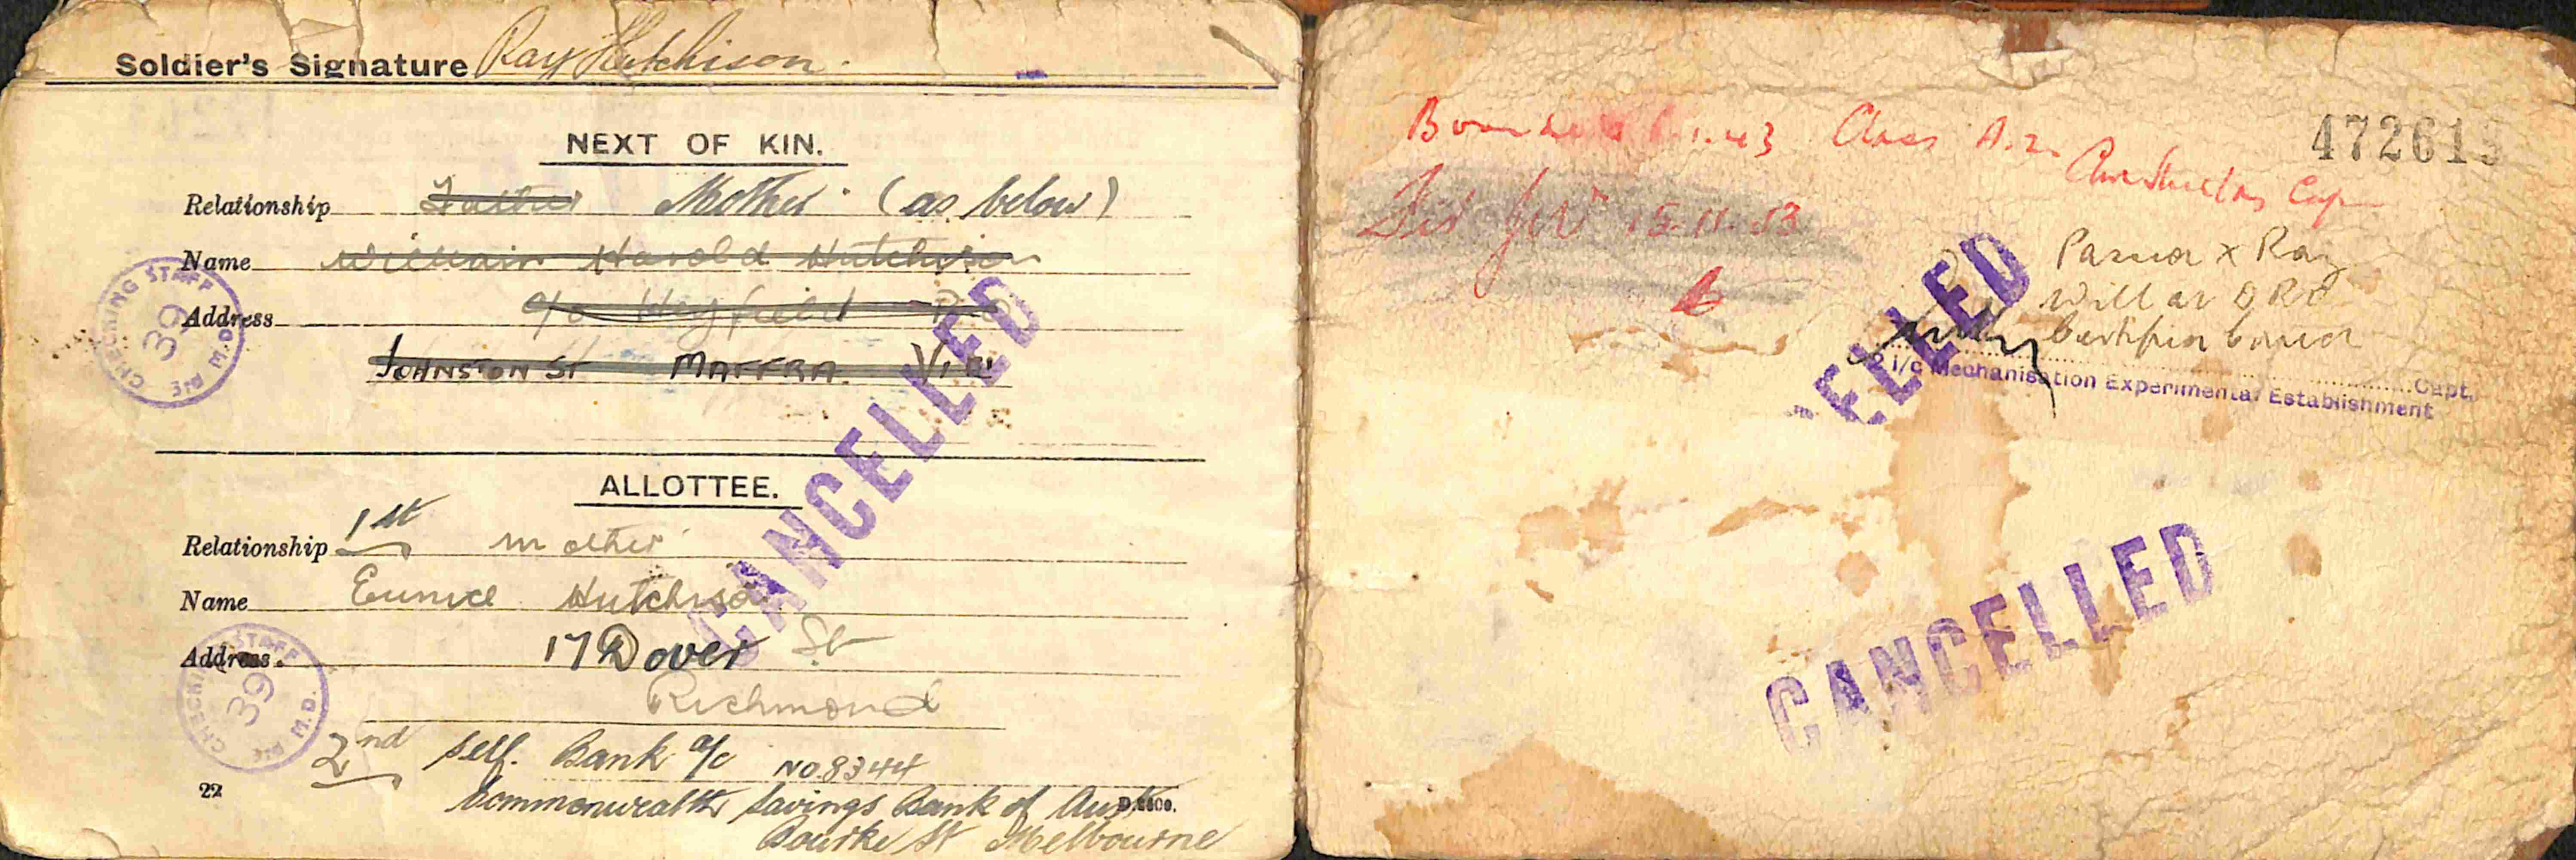 Soldier's Signature Ray Hutchison.
NEXT OF KIN.
Relationship Father Mother (as below)
Name William Harold Hutchison
Address c/o Heyfield P.O
JOHNSTON ST MAFFRA. VIC
CHECKING STAFF
39
M.D.
CANCELLED
ALLOTTEE.
Relationship 1st mother
Name Eunice Hutchison
Address 17 Dover St
Richmond
CHECKING STAFF
39
M.D.
2nd self. Bank a/c NO 8344
Commonwealth Savings Bank of Aust
Bourke St Melbourne
22
472619
1.43 Class A.2.
Capt
15.11.43
B
x Ray
Will at
ELLED
2 i/c Mechanisation Experimental Establishment
Capt.
CANCELLED